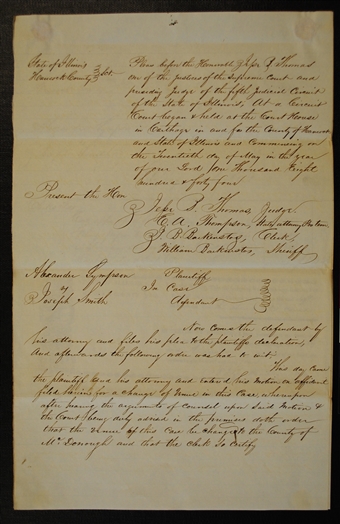 State of Illinois
Hancock County } Sct.
Pleas before the Honorable Jesse B Thomas
one of the justices of the Supreme Court and
presiding Judge of the fifth judicial Circuit
of the State of Illinois, At a Circuit
Court began & held at the Court House
in Carthage in and for the County of Hancock
and State of Illinois and Commencing on
the Twentieth day of May in the year
of our Lord One Thousand Eight
hundred & forty four
Present the Hon
Jesse B Thomas, Judge
E A Thompson, State attorney
J B Backenstos, Clerk
William Backenstos, Sheriff
Alexander Sympson Plaintiff
vs In Case
Joseph Smith Defendant
Now comes the defendant by
his attorney and files his plea to the plaintiffs declaration,
And afterwards the following order was had to wit
This day came
the plaintiff by his attorney and entered his motion on affidavit
filed herein for a change of Venue in this Case, whereupon
after hearing the arguments of counsel upon said motion &
the Court being duly advised in the premises doth order
that the venue of this case be changed to the County of
McDonough and that the clerk do certify